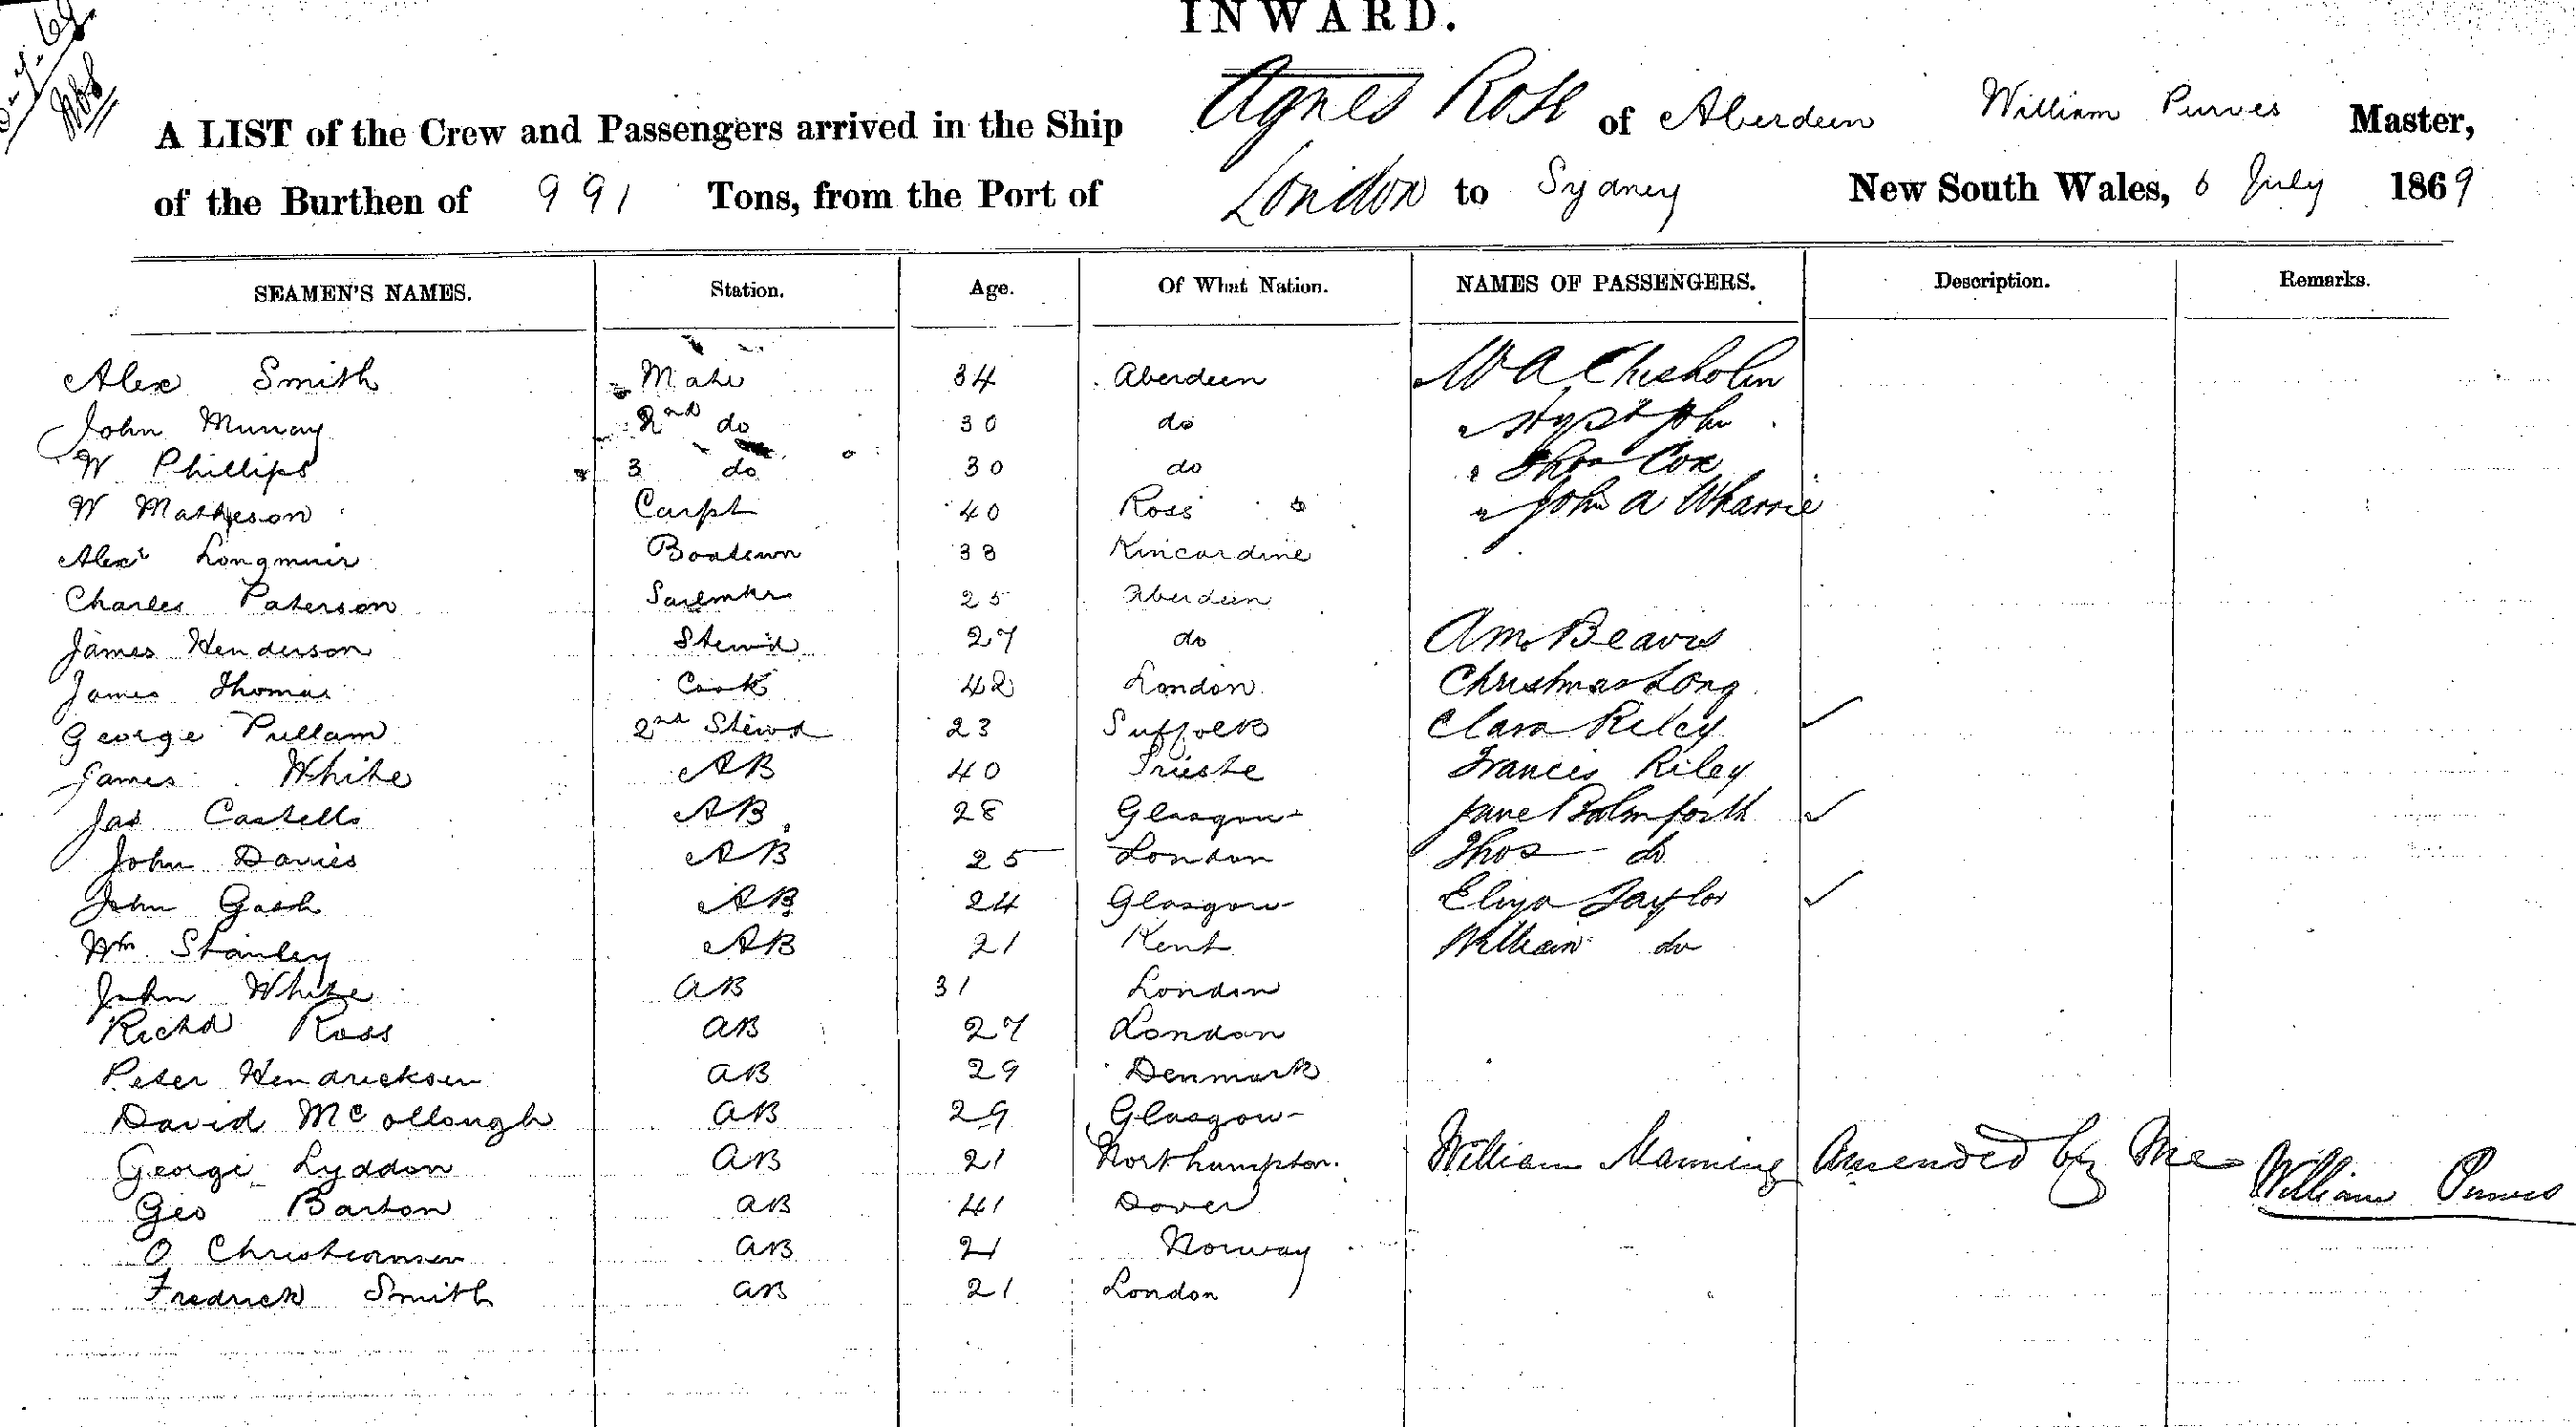 INWARD.
A LIST of the Crew and Passengers arrived in the Ship Agnes Rose of Aberdeen William Purves Master,
of the Burthen of 991 Tons, from the Port of London to Sydney New South Wales, 6 July 1869
SEAMEN'S NAMES. Station. Age. Of What Nation. NAMES OF PASSENGERS. Description. Remarks.
Alex Smith Mate 34 Aberdeen W A Chisholm
John Murray 2nd do 30 do
W Phillips 3 do 30 do Thos Cox
W Matheson Carpt 40 Ross John A Wharrie
Alexr Longmuir Boatswn 38 Kincardine
Charles Paterson Sailmkr 25 Aberdeen
James Henderson Stewd 27 do Beavis
James Thomas Cook 42 London Christmas Long
George Pullam 2nd Stewd 23 Suffolk Clara Riley
James White AB 40 Trieste Francis Riley
Jas Castells AB 28 Glasgow Jane Bolmforth
John Davies AB 25 London Thos do
John Gash AB 24 Glasgow Eliza Taylor
Wm Stanley AB 21 Kent William do
John White AB 31 London
Richd Ross AB 27 London
Peter Hendricksen AB 29 Denmark
David McCollough AB 29 Glasgow
George Lyddon AB 21 Northampton. William Manning Amended by Me
William Purves
Geo Barton AB 41 Dover
O Christiansen AB 21 Norway
Fredrick Smith AB 21 London